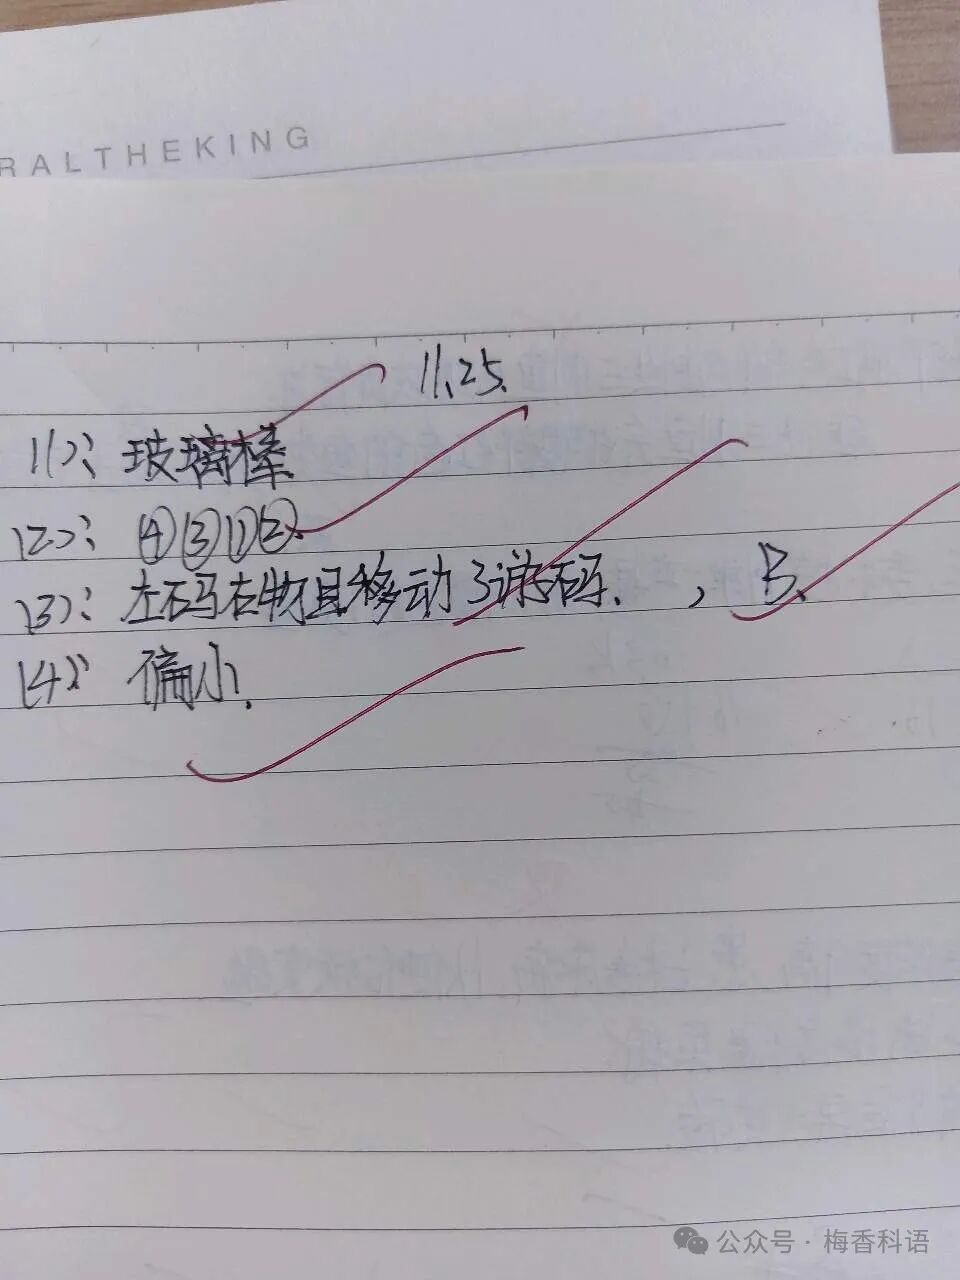 RALTHEKING
11.25.
(1): 玻璃棒
(2): ④③①②.
(3): 左码右物且移动了游码. , B.
(4): 偏小.
公众号 · 梅香科语